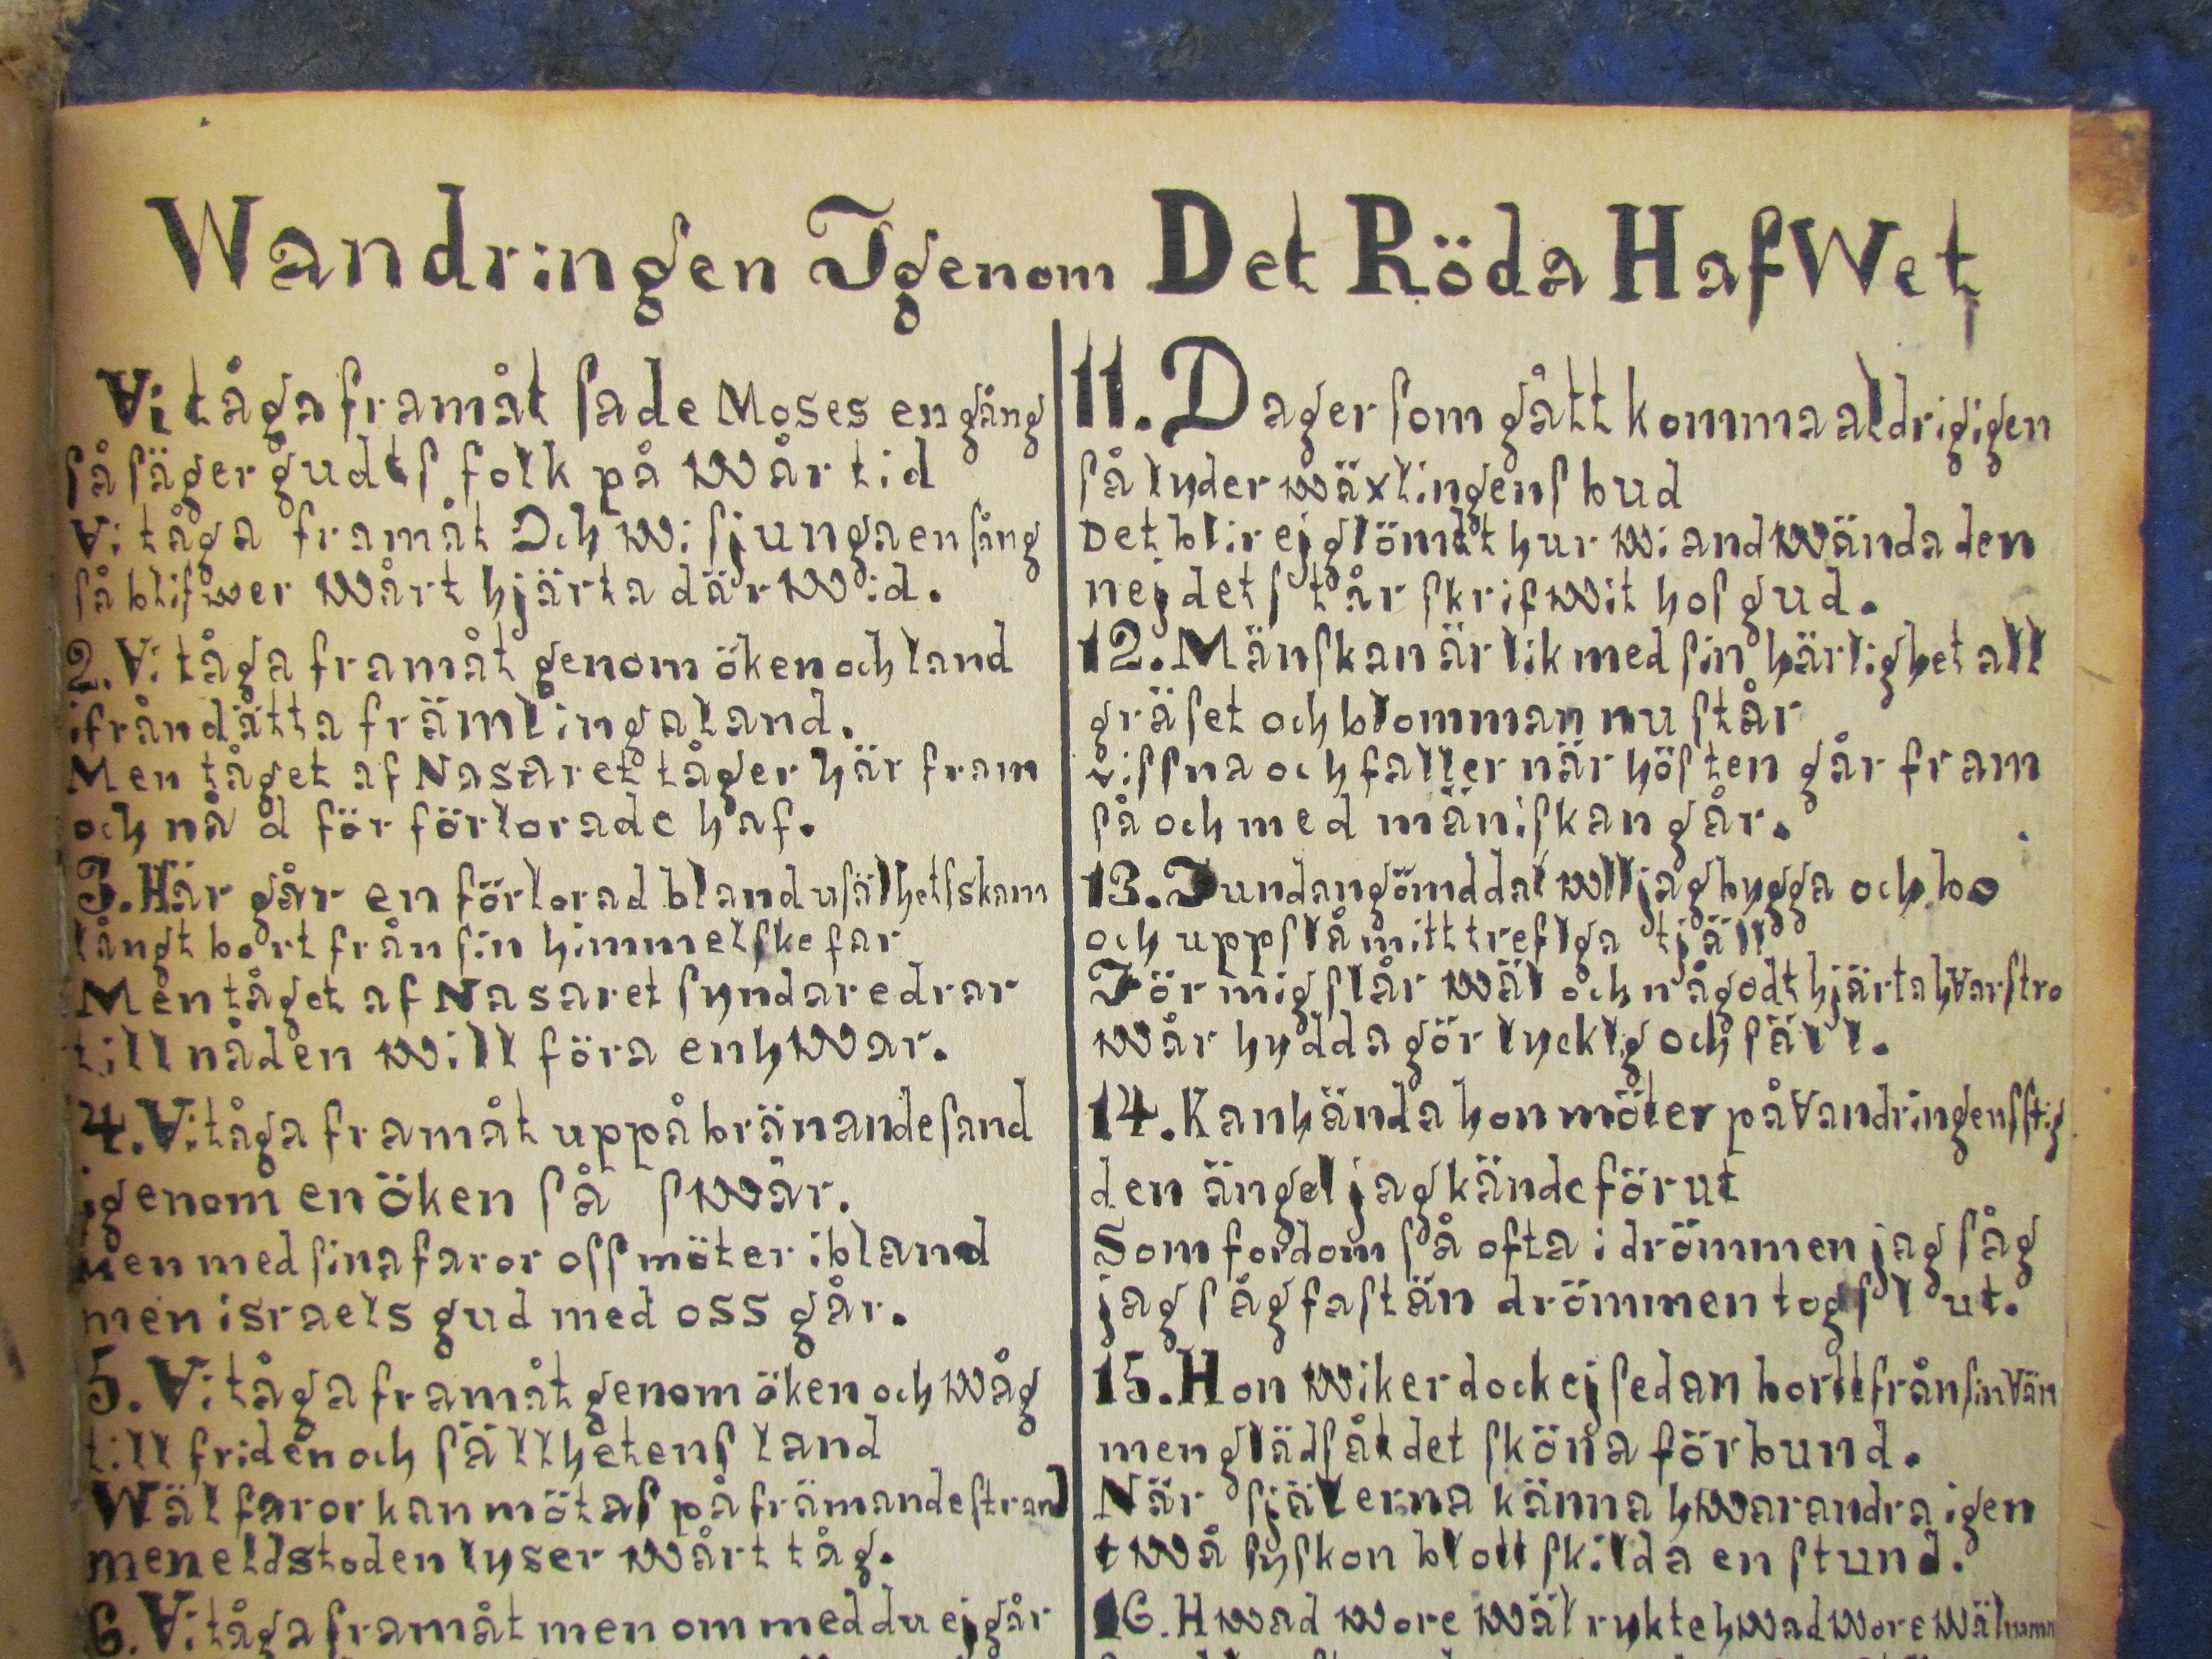 Wandringen Igenom Det Röda HafWet
Vi tåga framåt sade Moses en gång
så säger gudts folk på wår tid
Vi tåga framåt Och wi sjunga en sång
så blifwer wårt hjärta där wid.
2. Vi tåga framåt genom öken och land
ifrån dätta främlingaland.
Men tåget af Nasaret tåger här fram
och nåd för förlorade haf.
3. Här går en förlorad bland usälhetsskam
långt bort från sin himmelske far
Men tåget af Nasaret syndare drar
till nåden will föra enhwar.
4. Vi tåga framåt uppå bränande sand
igenom en öken så swår.
men med sina faror oss möter ibland
men israels gud med oss går.
5. Vi tåga framåt genom öken och wåg
till friden och sällhetens land
Wäl faror kan mötas på främande strand
men eldstoden lyser wårt tåg.
6. Vi tåga framåt men om med du ej går
11. Dager som gått komma aldrig igen
så lyder wäxlingens bud
Det blir ej glömdt hur wi andwända den
nej det står skrifwit hos gud.
12. Mänskan är lik med sin härlighet all
gräset och blomman nu står
vissna och faller när hösten går fram
så och med mäniskan går.
13. I undangömd dal will jag bygga och bo
och uppslå mitt treflga tjäll
För mig slår wäl och någodt hjärta hvars tro
wår hydda gör lycklg och säll.
14. Kanhända hon möter på vandringens stig
den ängel jag kände förut
Som fordom så ofta i drömmen jag såg
jag såg fastän drömmen tog slut.
15. Hon wiker dock ej sedan bortt från sin vän
men gläds åt det sköna förbund.
När själerna känna hwarandra igen
twå syskon blott skilda en stund.
16. Hwad wore wäl rykte hwad wore wäl namn